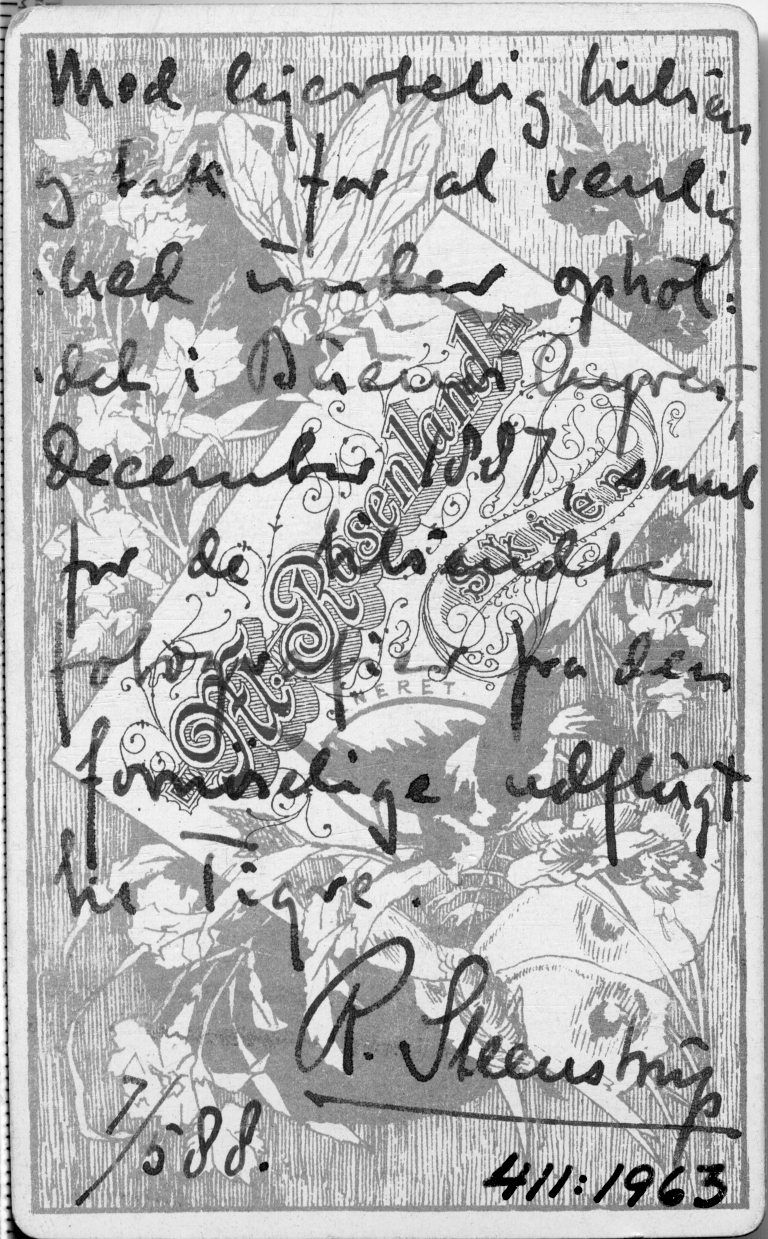 Med hjertelig hilsen
og tak for al venlig
:hed under ophol:
:det i Buenos Ayres,
december 1887, samt
for de tilsendte
fotografier fra den
fornøielige udflugt
til Tigre.
R. Steenstrup
7/5 88.
411:1963
Fr. Rosenland.
Skien
NERET.